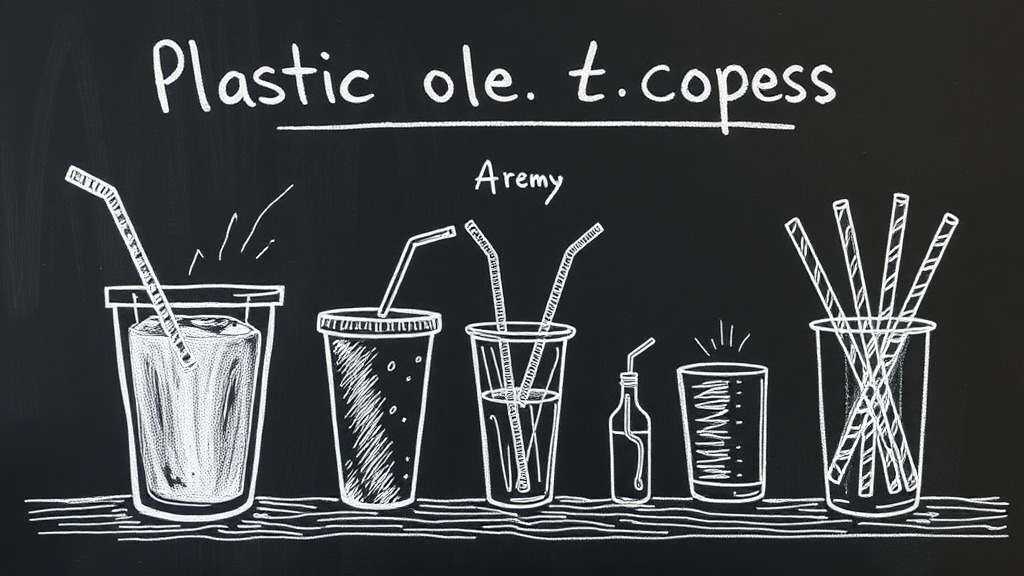 Plastic ole. t. copess
Aremy